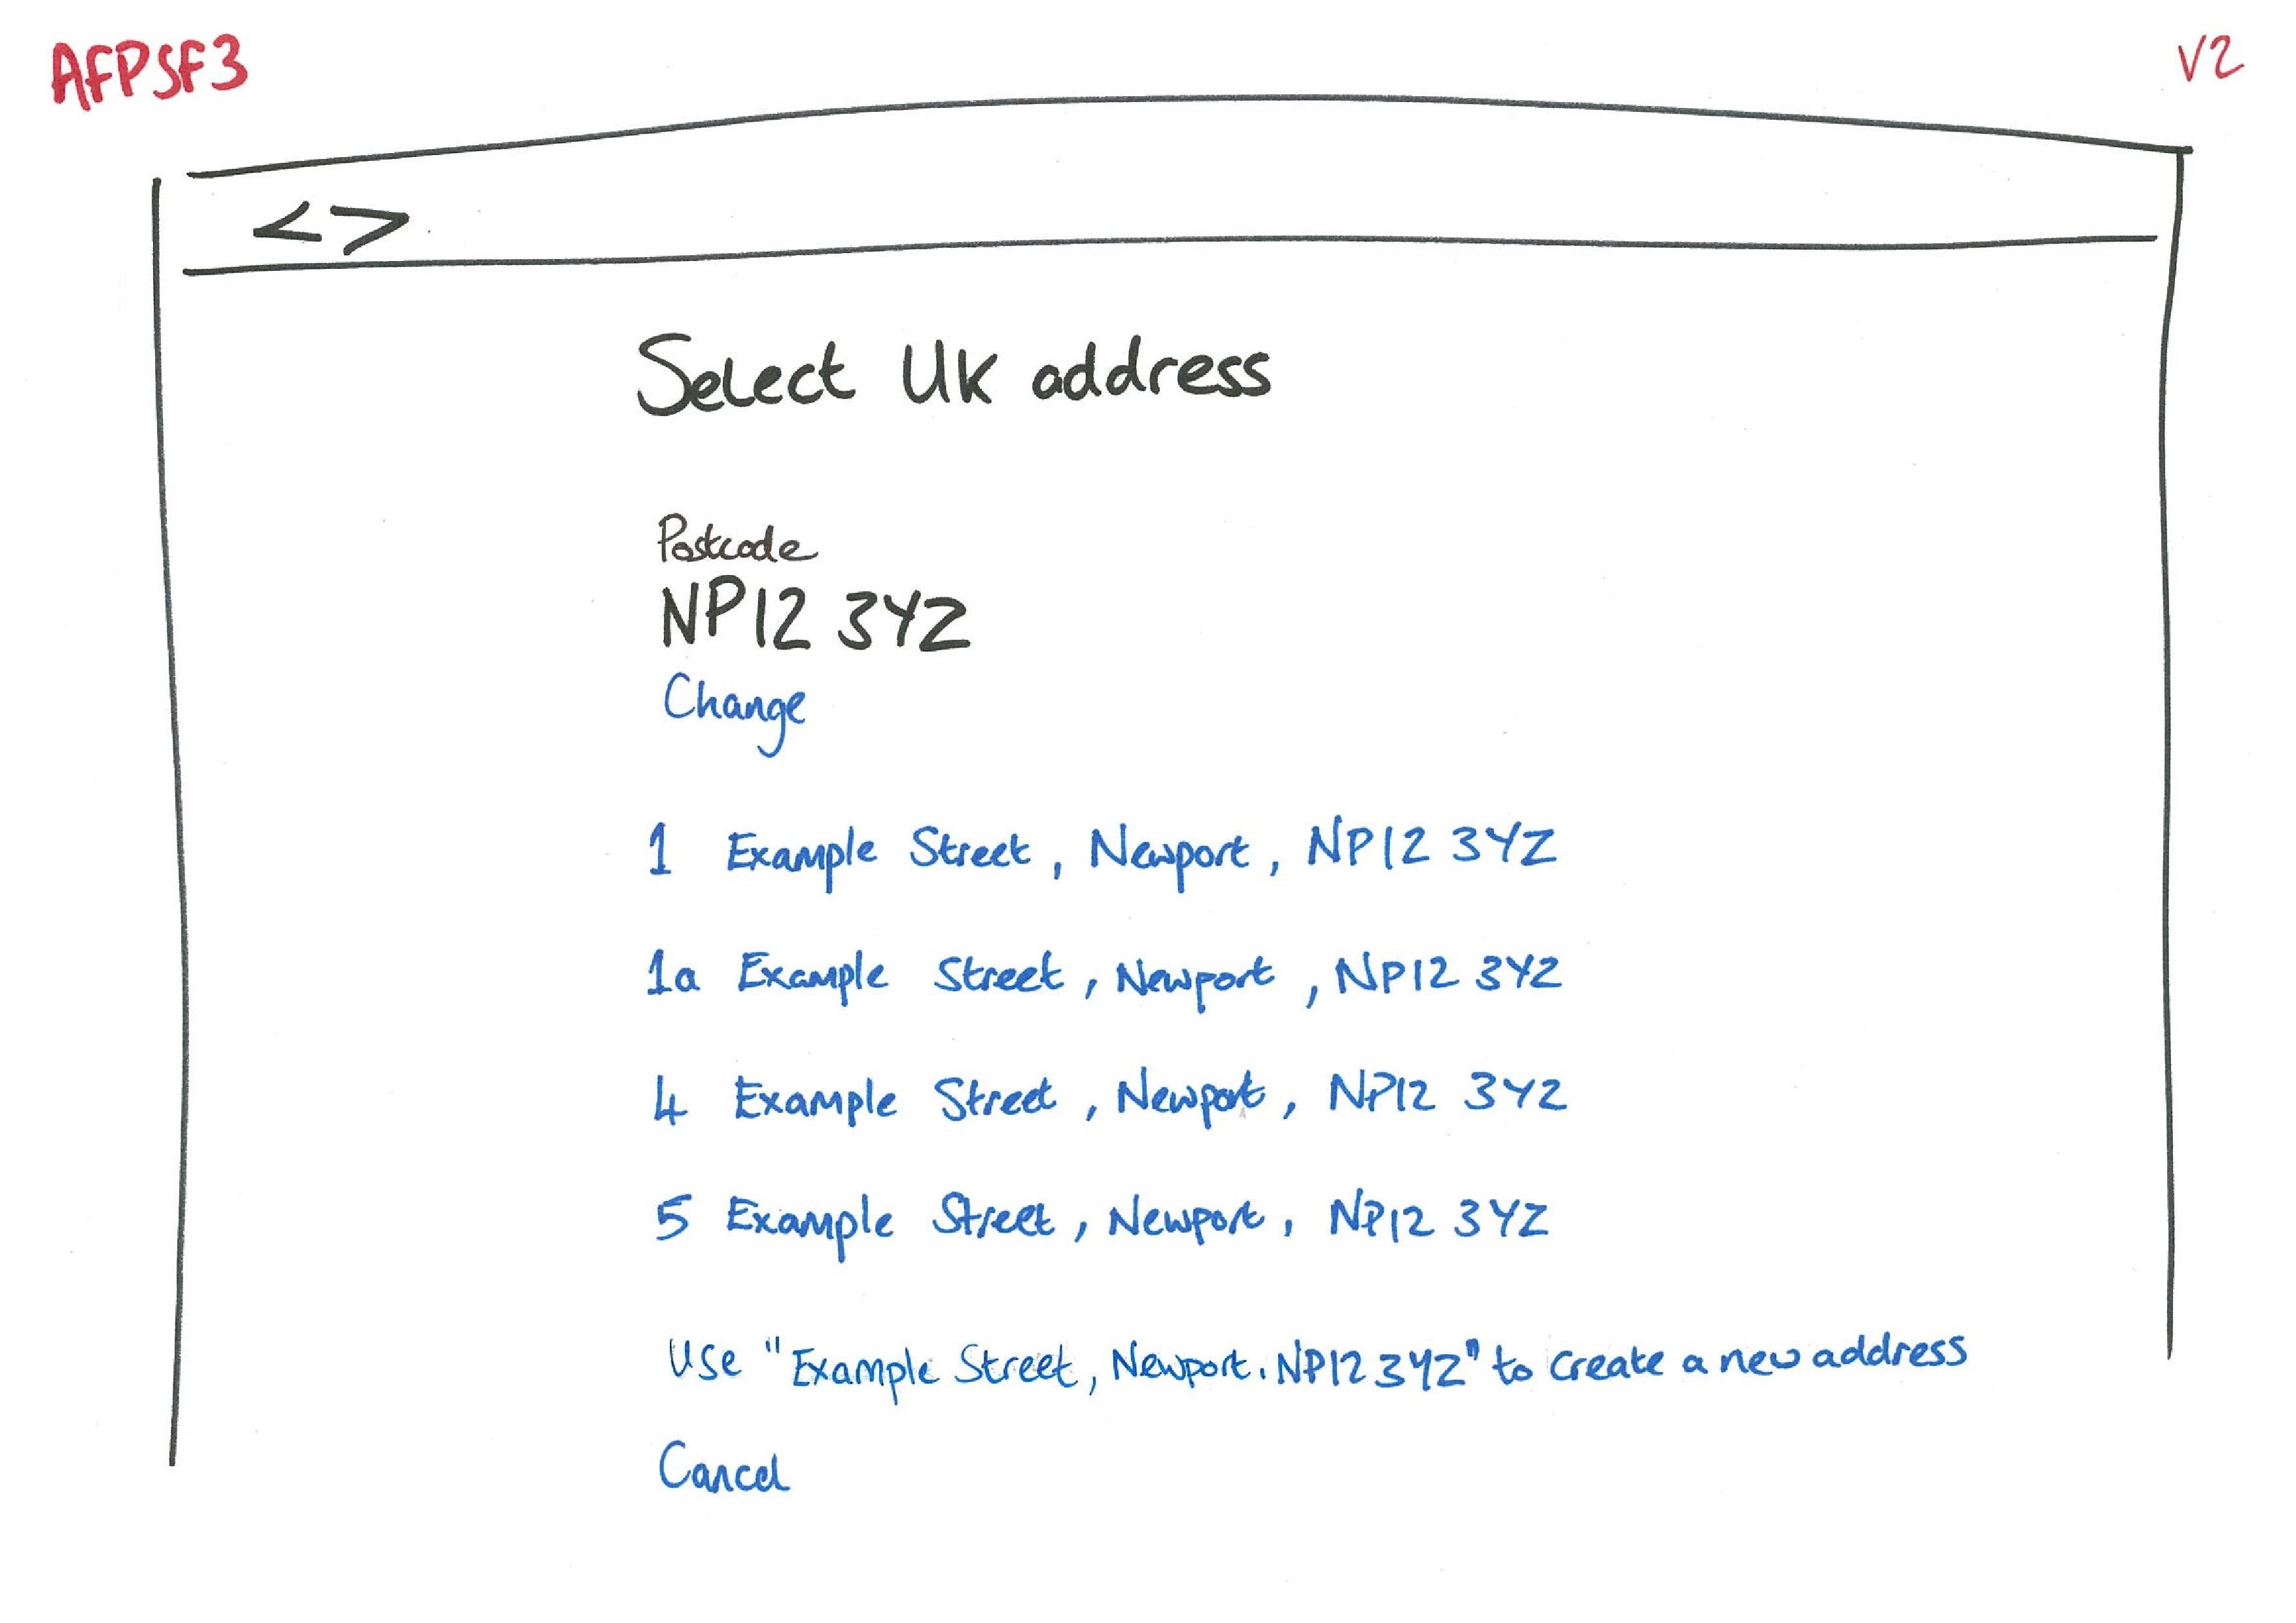 AFPSF3
V2
< >
Select UK address
Postcode
NP12 3YZ
Change
1 Example Street, Newport, NP12 3YZ
1a Example Street, Newport, NP12 3YZ
4 Example Street, Newport, NP12 3YZ
5 Example Street, Newport, NP12 3YZ
Use "Example Street, Newport. NP12 3YZ" to create a new address
Cancel